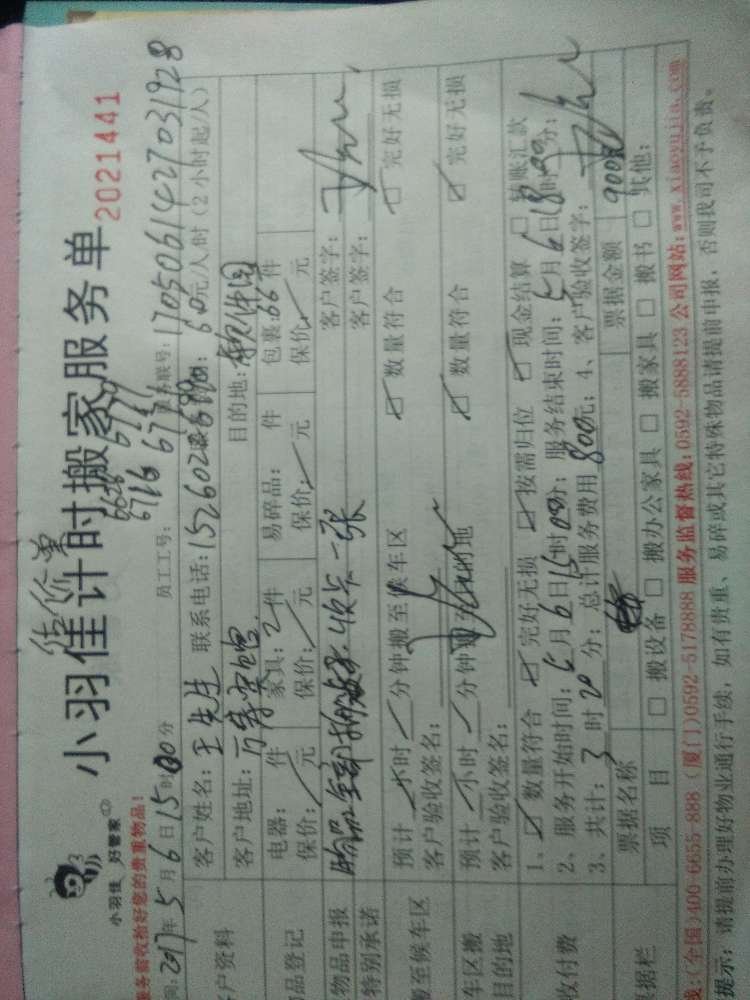 小羽佳 好管家
小羽佳计时搬家服务单
2021441
服务前收拾好您的贵重物品!
2017年5月6日15时00分
员工工号:
6716
1705061427031928
客户资料
客户姓名:王先生
联系电话:
元/人/时(2小时起/人)
客户地址:万寿宾馆
目的地:
品登记
电器: 件
家具:2件
易碎品: 件
包裹:66件
保价: 元
保价: 元
保价: 元
保价: 元
物品申报
特别承诺
物品全部
卡一张
客户签字:
客户签字:
搬至候车区
预计 小时 分钟搬至候车区
数量符合
完好无损
客户验收签名:
车区搬
目的地
预计 小时 分钟搬至目的地
数量符合
完好无损
客户验收签名:
收付费
1、数量符合 完好无损 按需归位 现金结算 转账汇款
2、服务开始时间:5月6日15时00分;服务结束时间:5月6日18时20分;
3、共计:3时20分;总计服务费用800元;4、客户验收签字:
据栏
票据名称
票据金额
900元
项 目
搬设备 搬办公家具 搬家具 搬书 其他:
线:(全国)400-6655-888 (厦门)0592-5178888 服务监督热线:0592-5888123 公司网站:www.xiaoyujia.com
提示:请提前办理好物业通行手续,如有贵重、易碎或其它特殊物品请提前申报,否则我司不予负责。